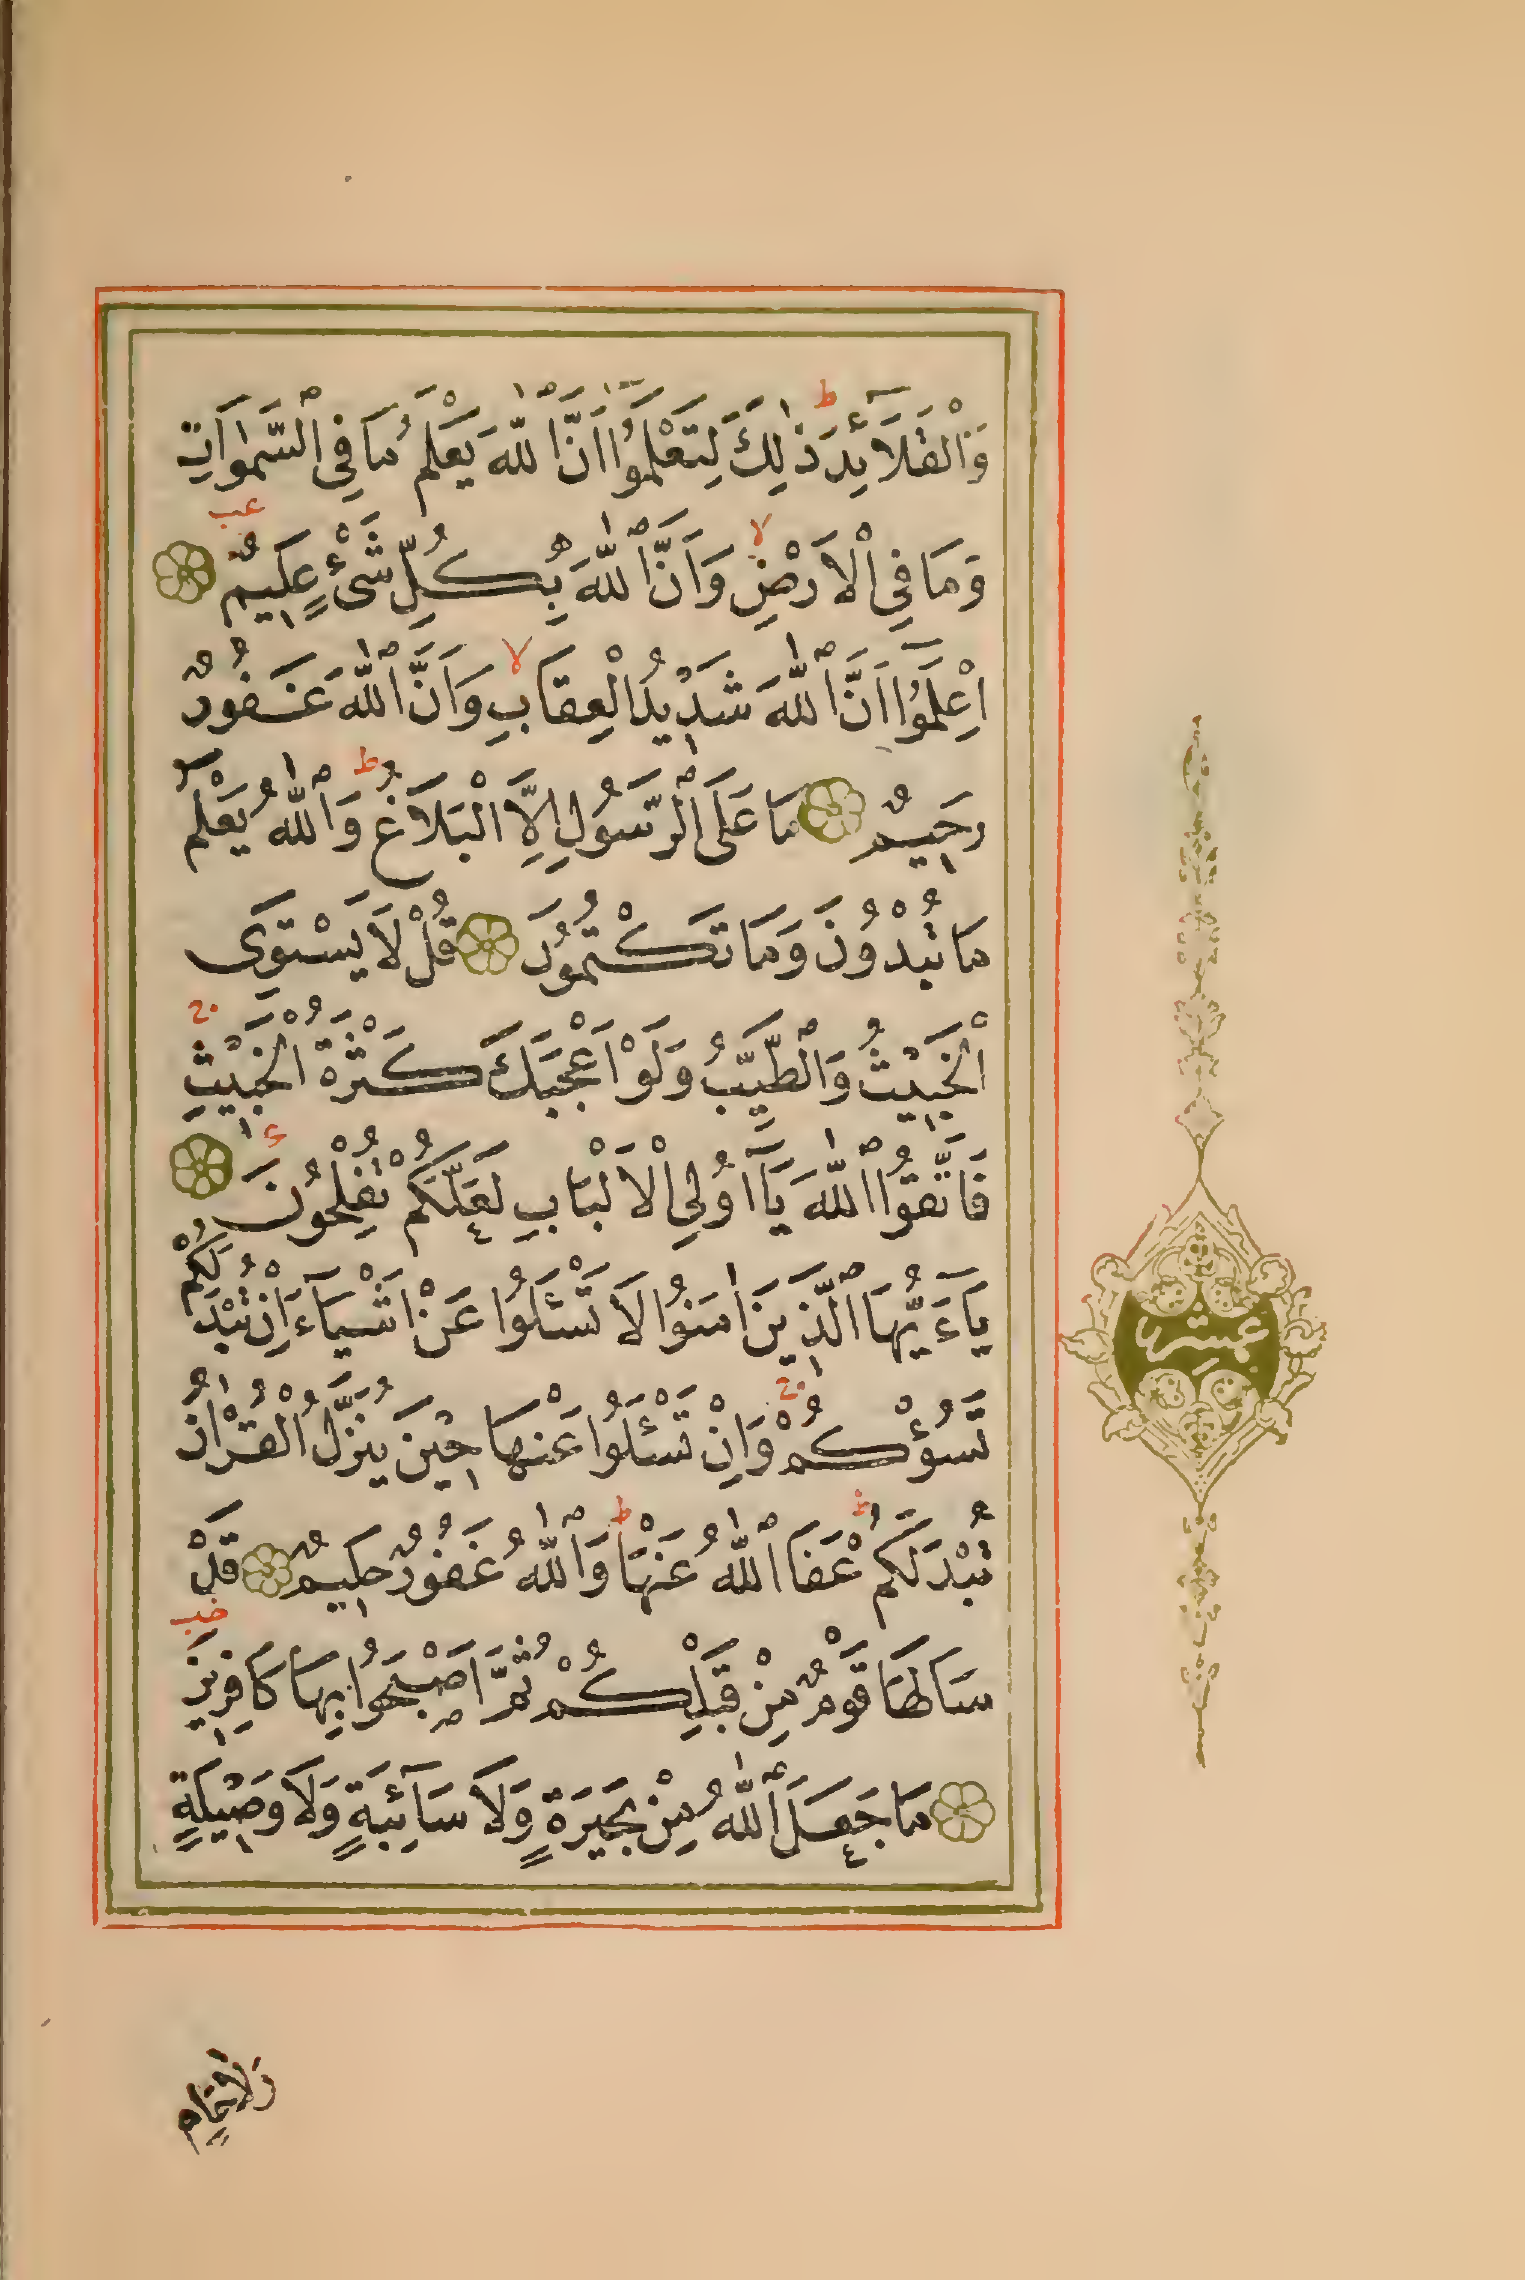 وَالْقَلَآئِدَ ذٰلِكَ لِتَعْلَمُٓوا اَنَّ اللّٰهَ يَعْلَمُ مَا فِى السَّمٰوَاتِ
وَمَا فِى الْاَرْضِ وَاَنَّ اللّٰهَ بِكُلِّ شَىْءٍ عَلِيمٌ
اِعْلَمُٓوا اَنَّ اللّٰهَ شَدٖيدُ الْعِقَابِ وَاَنَّ اللّٰهَ غَفُورٌ
رَحٖيمٌ مَا عَلَى الرَّسُولِ اِلَّا الْبَلَاغُ وَاللّٰهُ يَعْلَمُ
مَا تُبْدُونَ وَمَا تَكْتُمُونَ قُلْ لَا يَسْتَوِى
الْخَبٖيثُ وَالطَّيِّبُ وَلَوْ اَعْجَبَكَ كَثْرَةُ الْخَبٖيثِ
فَاتَّقُوا اللّٰهَ يَٓا اُولِى الْاَلْبَابِ لَعَلَّكُمْ تُفْلِحُونَ
يَٓاءَيُّهَا الَّذٖينَ اٰمَنُوا لَا تَسْئَلُوا عَنْ اَشْيَٓاءَ اِنْ تُبْدَ لَكُمْ
تَسُؤْكُمْ وَاِنْ تَسْئَلُوا عَنْهَا حٖينَ يُنَزَّلُ الْقُرْاٰنُ
تُبْدَ لَكُمْ عَفَا اللّٰهُ عَنْهَا وَاللّٰهُ غَفُورٌ حَلٖيمٌ قَدْ
سَاَلَهَا قَوْمٌ مِنْ قَبْلِكُمْ ثُمَّ اَصْبَحُوا بِهَا كَافِرٖينَ
مَا جَعَلَ اللّٰهُ مِنْ بَحٖيرَةٍ وَلَا سَٓائِبَةٍ وَلَا وَصٖيلَةٍ
عشر
وَلَا حَامٍ